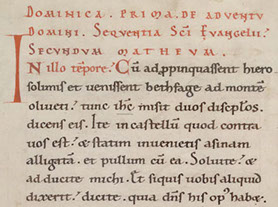 DOMINICA. PRIMA. DE ADVENTU
DOMINI. SEQUENTIA SC̄I EVANGELII.
SECUNDUM MATHEUM.
IN illo tēpore. Cū adp̱pinquassent hiero
solimis et venissent bethfage ad montē
oliveti. tunc ihc̄ misit duos discip̄los.
dicens eis. Ite in castellū quod contra
vos est. & statim invenietis asinam
alligatā. et pullum cū ea. Solvite. &
ad ducite michi. Et siquis vobis aliquid
dixerit. dicite. quia dn̄s his op̄ habȩ.